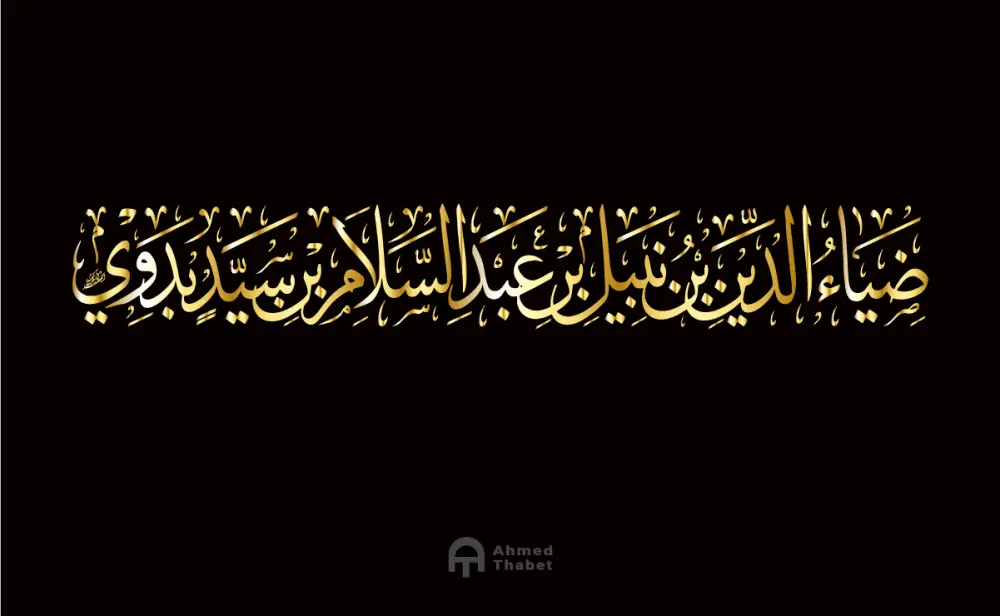 ضِيَاءُ الدِّيْنِ بْنُ نَبِيلِ بْنِ عَبْدِ السَّلَامِ بْنِ سَيِّدٍ بَدَوِيْ
Ahmed
Thabet